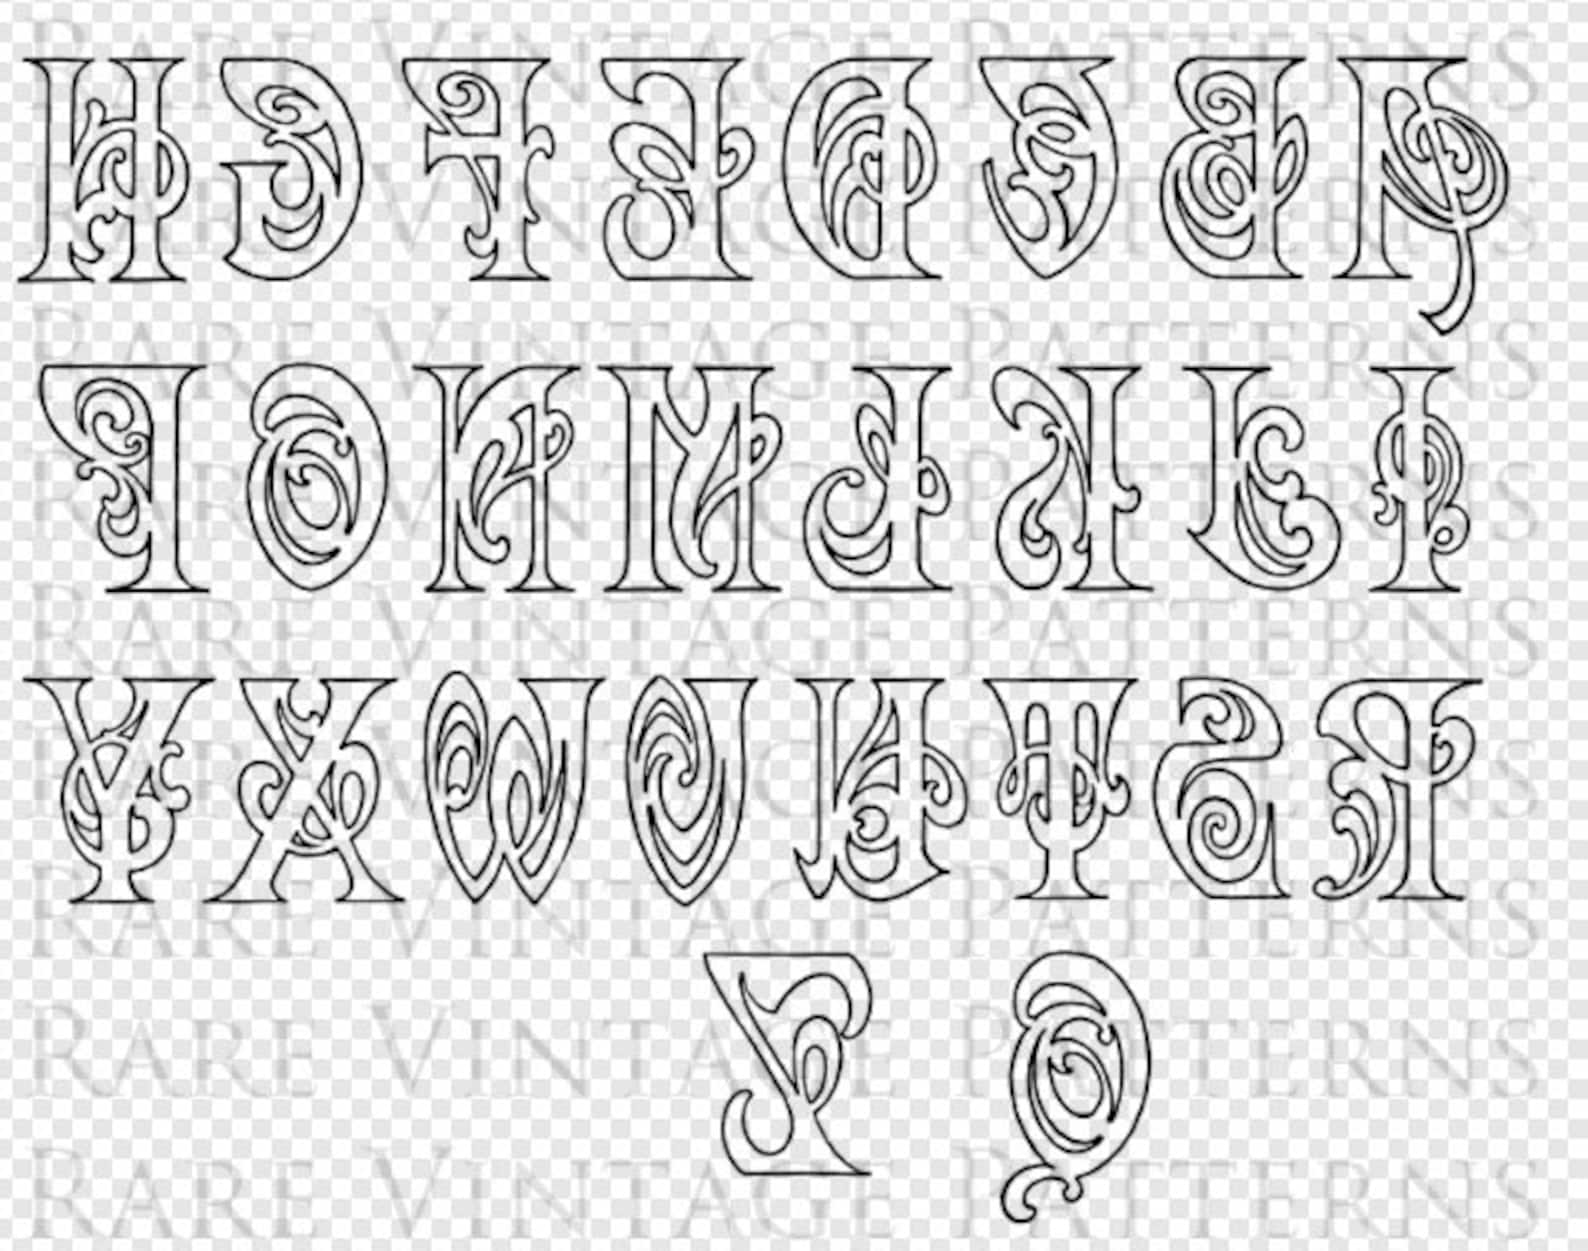 RARE VINTAGE PATTERNS
H G F E D C B A
RARE VINTAGE PATTERNS
RARE VINTAGE PATTERNS
P O N M L K J I
RARE VINTAGE PATTERNS
RARE VINTAGE PATTERNS
Y X W V U T S R
RARE VINTAGE PATTERNS
RARE VINTAGE PATTERNS
Z Q
RARE VINTAGE PATTERNS
RARE VINTAGE PATTERNS